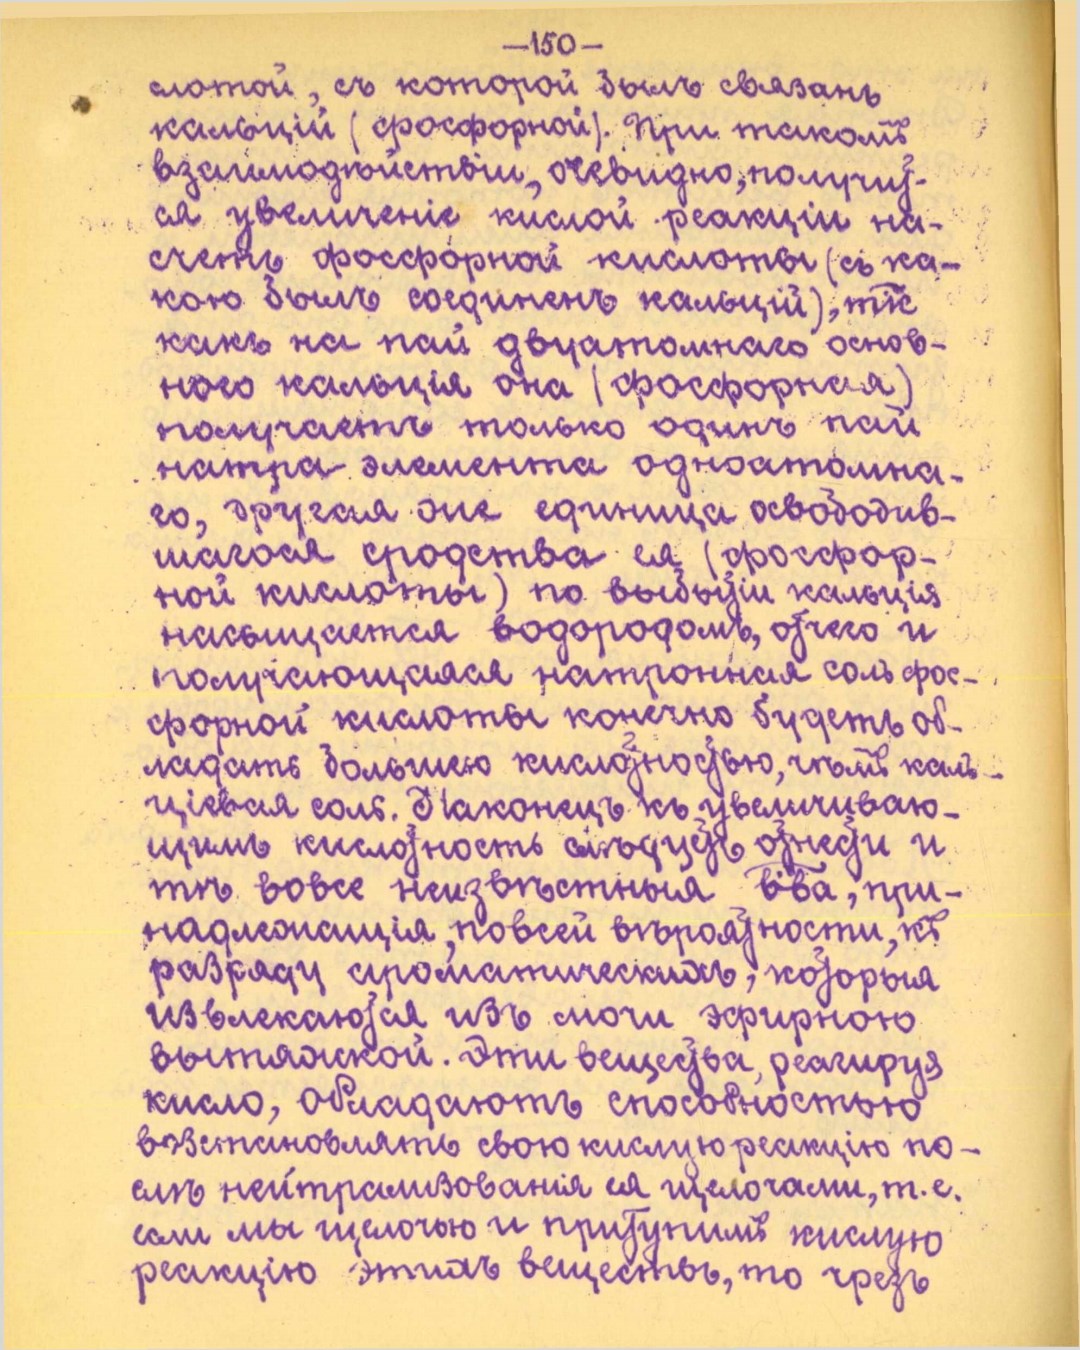 —150—
слотой, съ которой былъ связанъ
кальцій (фосфорной). При такомъ
взаимодѣйствіи, очевидно, получит-
ся увеличеніе кислой реакціи на-
счетъ фосфорной кислоты (съ ка-
кою былъ соединенъ кальцій), такъ
какъ на пай двуатомнаго основ-
ного кальція она (фосфорная)
получаетъ только одинъ пай
натра элемента одноатомна-
го, другая же единица освободив-
шагося сродства ея (фосфор-
ной кислоты) по выбытіи кальція
насыщается водородомъ, отчего и
получающаяся натронная соль фос-
форной кислоты конечно будетъ об-
ладать большею кислотностью, чѣмъ каль-
ціевая соль. Наконецъ къ увеличиваю-
щимъ кислотность слѣдуетъ отнести и
тѣ вовсе неизвѣстныя в-ва, при-
надлежащія, по всей вѣроятности, къ
разряду ароматическихъ, которыя
извлекаются изъ мочи эфирною
вытяжкой. Эти вещества, реагируя
кисло, обладаютъ способностью
возстановлять свою кислую реакцію по-
слѣ нейтрализованія ея щелочами, т.е.
если мы щелочью и притупимъ кислую
реакцію этихъ веществъ, то чрезъ